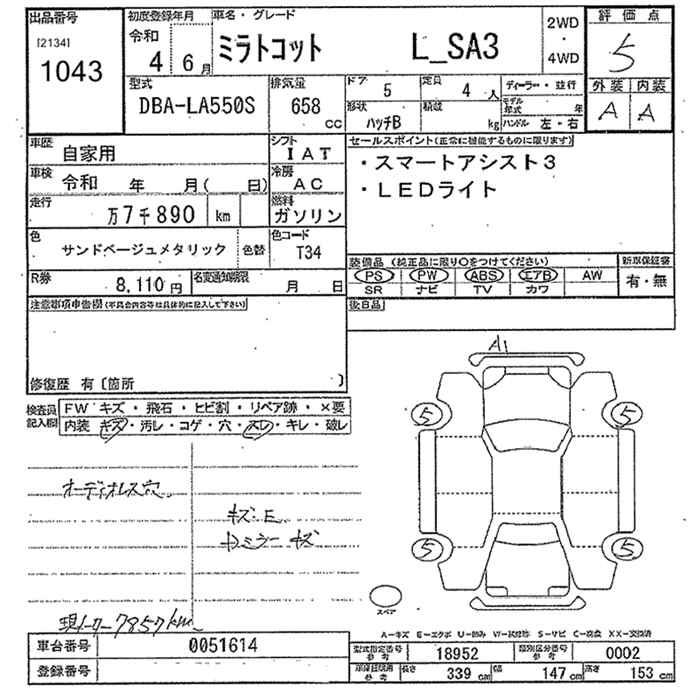 出品番号 初度登録年月 車名・グレード 2WD 評価点
[2134] 令和 ・
1043 4 6月 ミラトコット L_SA3 4WD 5
型式 排気量 ドア 5 定員 4人 ディーラー・並行 外装 内装
DBA-LA550S 658 CC 形状 ハッチB 積載 kg モデル年式 年 A A
ハンドル 左・右
車歴 自家用 シフト IAT セールスポイント(正常に機能するものに限ります)
車検 令和 年 月( 日) 冷房 AC ・スマートアシスト3
走行 万7千890 km 燃料 ガソリン ・LEDライト
色 サンドベージュメタリック 色替 色コード T34
装備品(純正品に限り○をつけてください) 新車保証書
R券 8,110円 名変通知期限 月 日 PS PW ABS エアB AW 有・無
SR ナビ TV カワ
注意事項申告欄(不具合内容等は具体的に記入して下さい) 後日品
A1
修復歴 有〔箇所 〕
検査員記入欄 FW キズ・飛石・ヒビ割・リペア跡・×要
内装 キズ・汚レ・コゲ・穴・スレ・キレ・破レ
5 5
オーディオレス穴
キズ・E
ミラー キズ
5 5
スペア
現メーター7857km
A-キズ E-エクボ U-凹み W-試修跡 S-サビ C-腐食 XX-交換済
車台番号 0051614 型式指定番号 参考 18952 類別区分番号 参考 0002
登録番号 参考 長さ 339 cm 幅 147 cm 高さ 153 cm